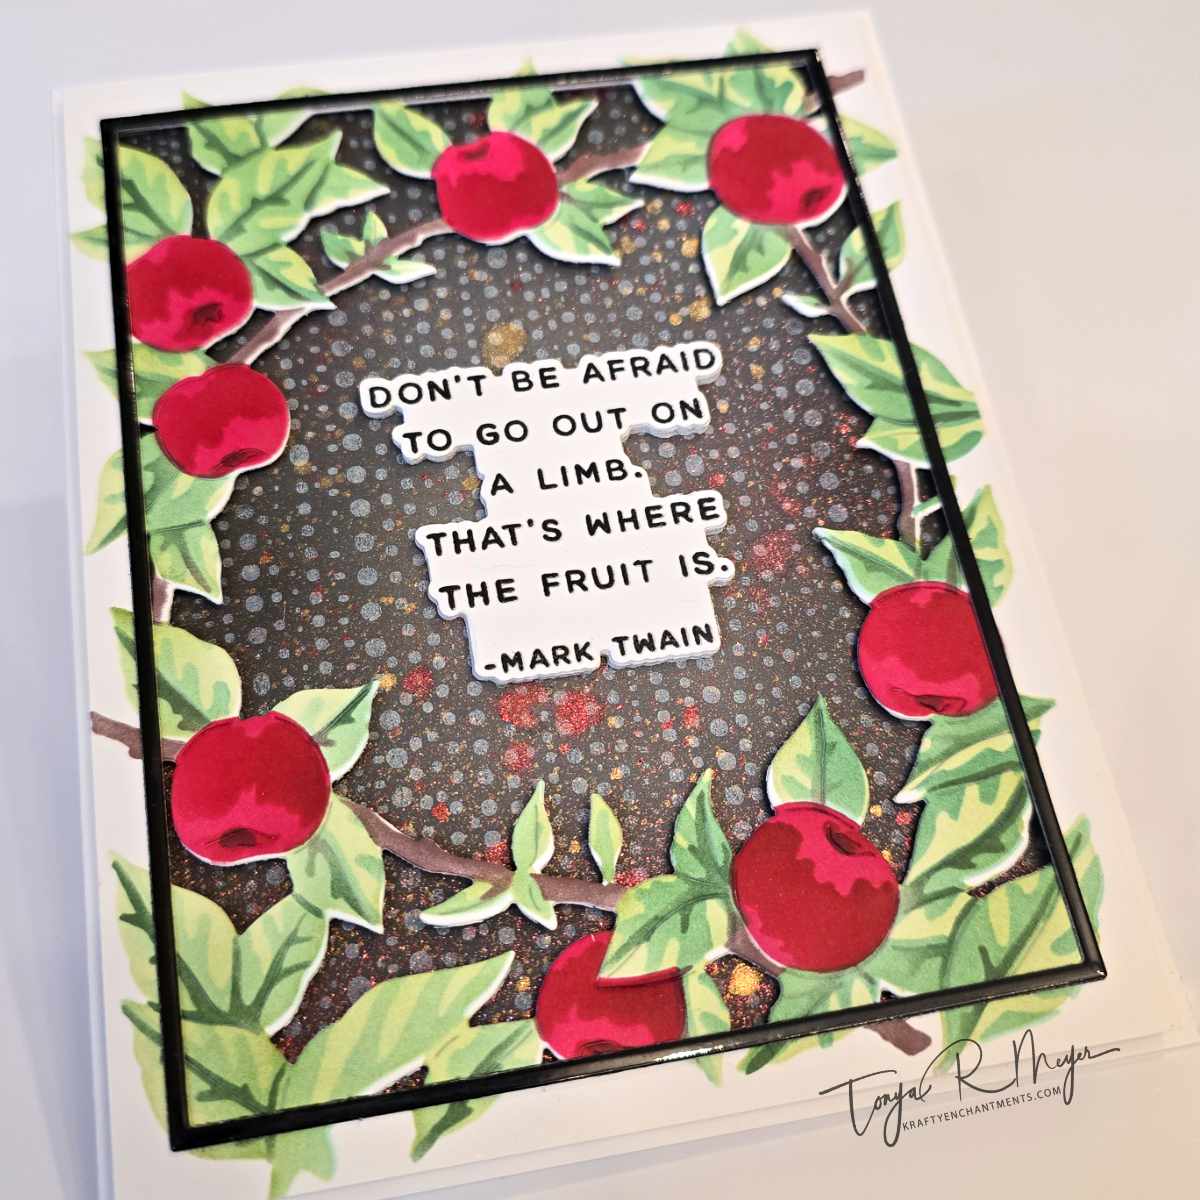 DON'T BE AFRAID
TO GO OUT ON
A LIMB.
THAT'S WHERE
THE FRUIT IS.
-MARK TWAIN
Tonya R Meyer
KRAFTYENCHANTMENTS.COM